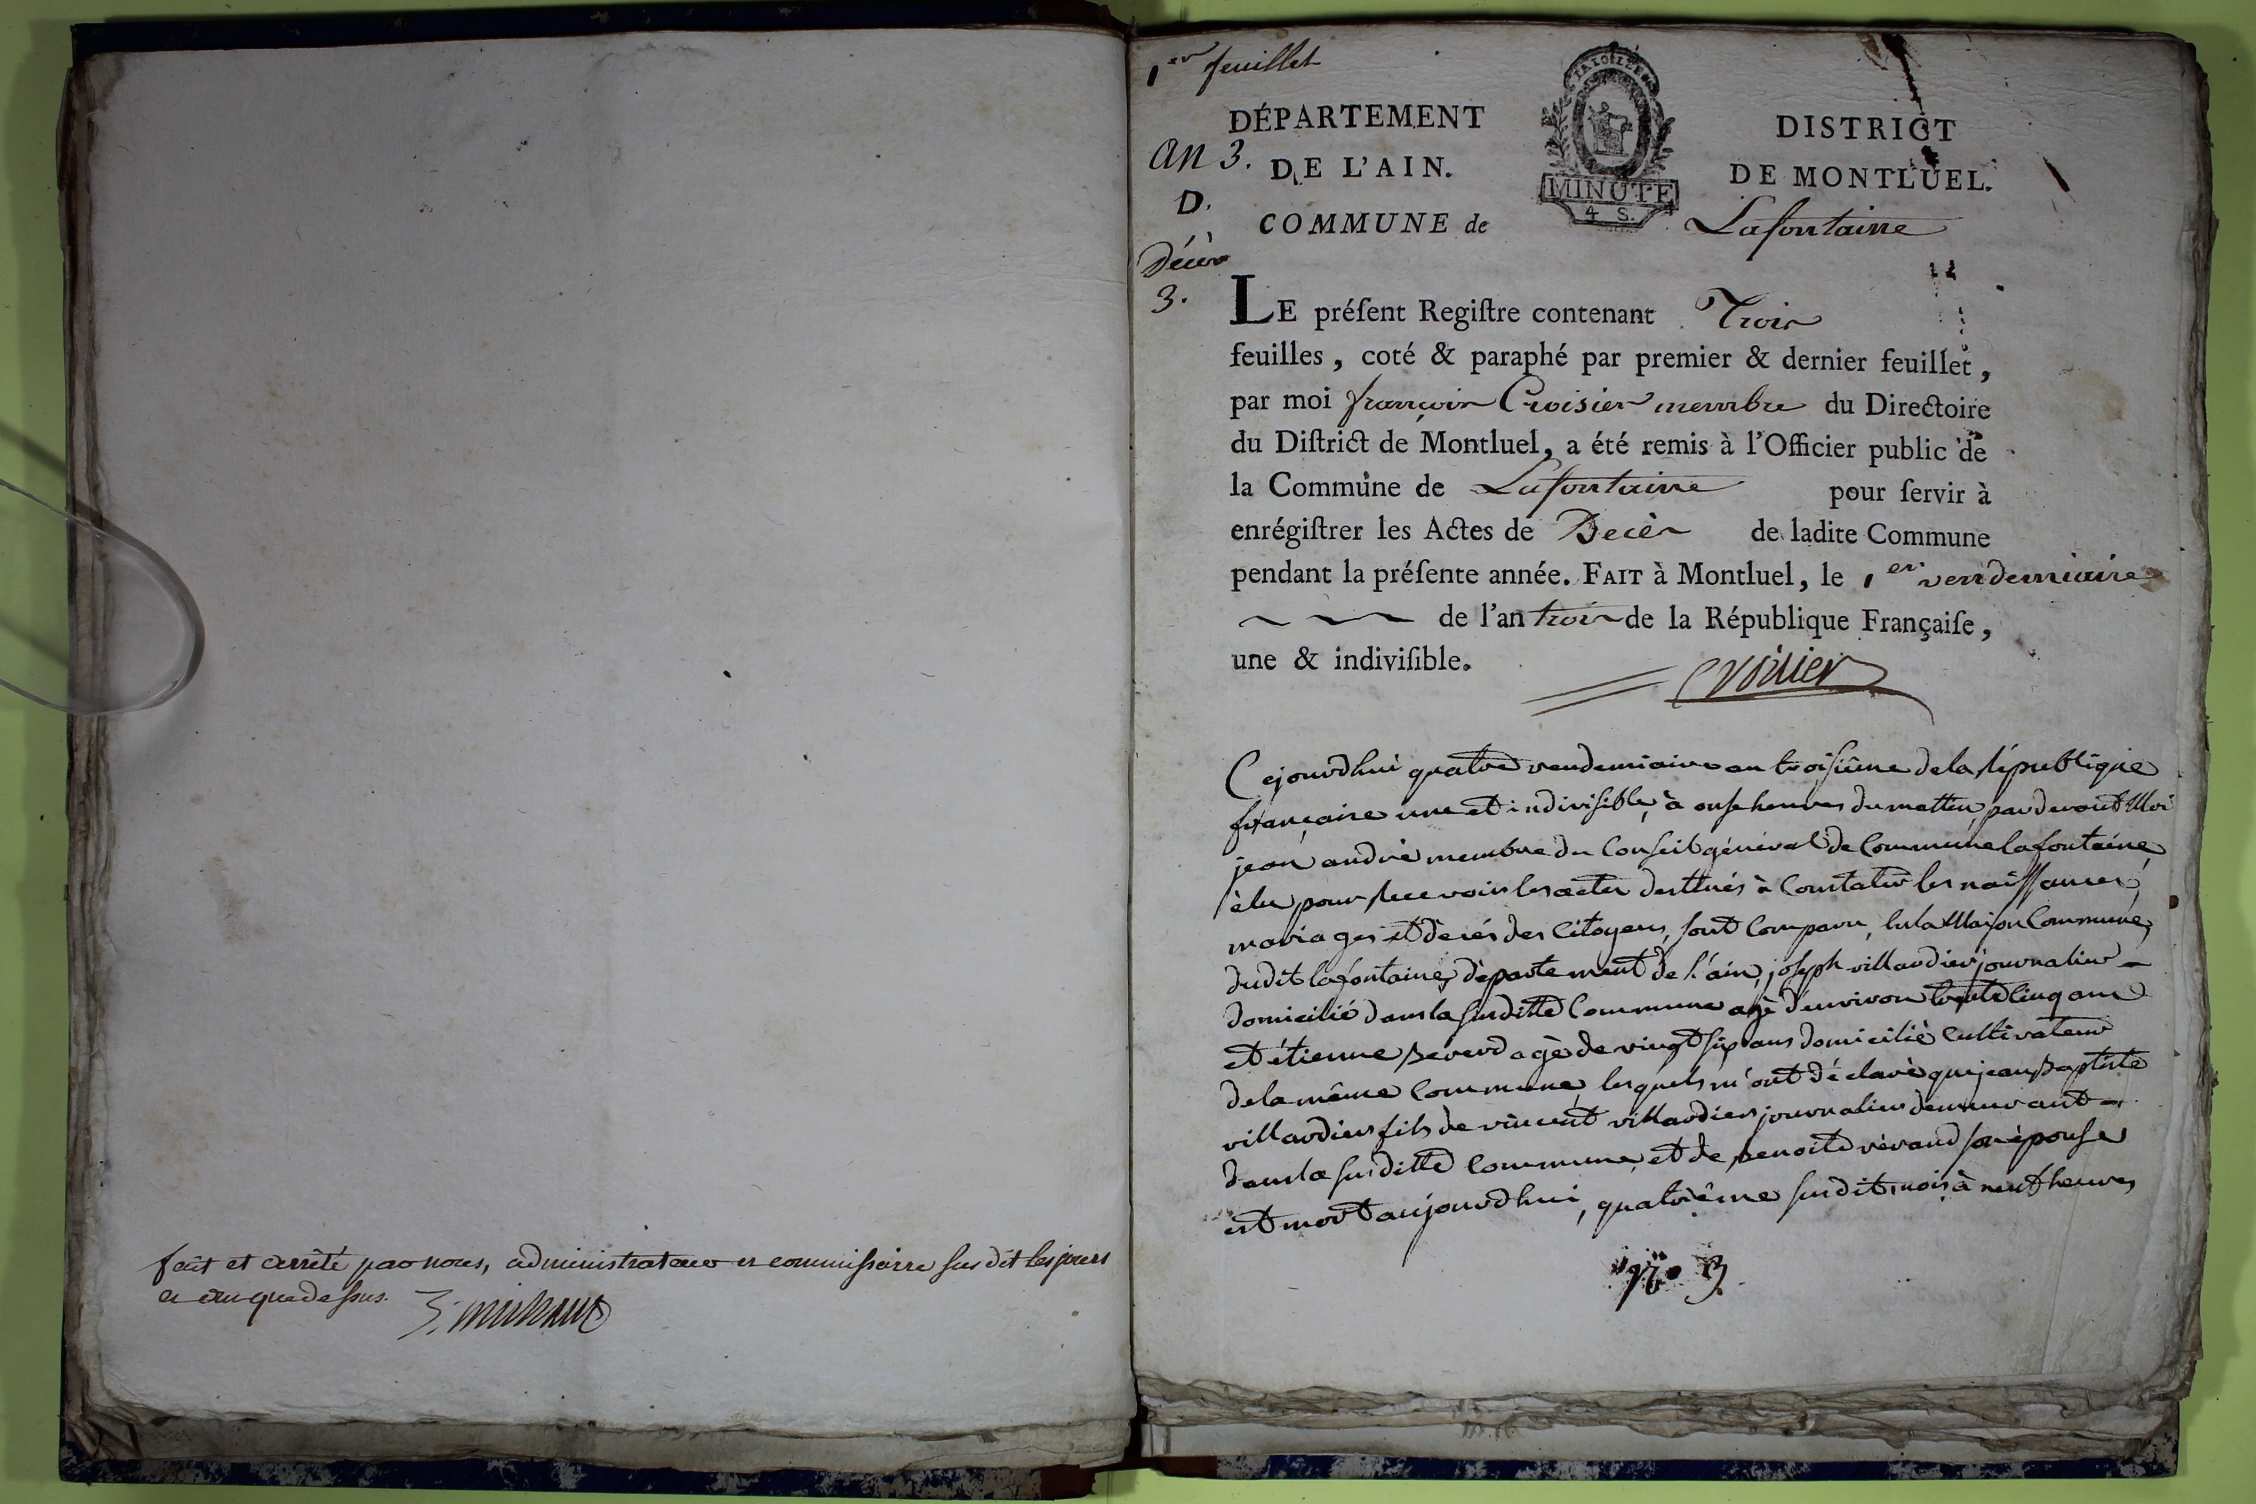 fait et arrêté par nous, administrateur et commissaire sus dit les jours
et an que dessus.
1er feuillet
DÉPARTEMENT
DE L'AIN.
COMMUNE de
an 3.
D.
Décès
3.
MINUTE
4 S.
DISTRICT
DE MONTLUEL.
Lafontaine
LE préſent Regiſtre contenant Trois
feuilles, coté & paraphé par premier & dernier feuillet,
par moi françois Croisier membre du Directoire
du Diſtrict de Montluel, a été remis à l'Officier public de
la Commune de Lafontaine pour ſervir à
enrégiſtrer les Actes de Decès de ladite Commune
pendant la préſente année. FAIT à Montluel, le 1er vendemiaire
de l'an trois de la République Françaiſe,
une & indiviſible.
Croisier
Cejourdhui quatre vendemiaire an troisiême de la république
française une et indivisible, à onse heures du mattin, par devant Moi
jean andré membre du Conseil général de Commune lafontaine,
élu pour recevoir les actes destinés à Constater les naissances,
mariages et décés des Citoyens, sont Comparu, en la Maison Commune,
dudit lafontaine, département de l'ain, joseph villardier journalier
domicilié dans la susditte Commune agé d'environ trente cinq ans
et étienne reverd agè de vingt six ans domicilié Cultivateur
de la même Commune, lesquels m'ont déclaré que jean Baptiste
villardier fils de vincent villardier journalier demeurant
dans la susditte Commune, et de benoite révand son épouse
est mort aujourdhui, quatrième susdit mois, à neuf heures
N° 3.